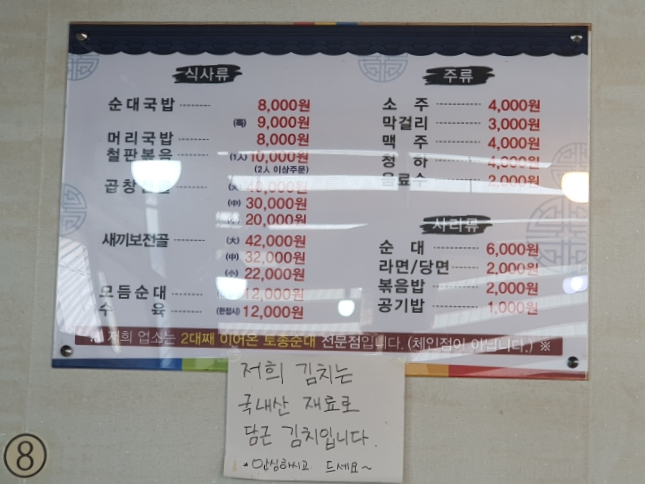 식사류
순대국밥 8,000원
(특) 9,000원
머리국밥 8,000원
철판볶음 (1人) 10,000원
(2人 이상주문)
곱창 (大) 40,000원
(中) 30,000원
20,000원
새끼보전골 (大) 42,000원
(中) 32,000원
(小) 22,000원
모듬순대 12,000원
수 육 (한접시) 12,000원
주류
소 주 4,000원
막걸리 3,000원
맥 주 4,000원
청 하 4,000원
음료수 2,000원
사리류
순 대 6,000원
라면/당면 2,000원
볶음밥 2,000원
공기밥 1,000원
※ 저희 업소는 2대째 이어온 토종순대 전문점입니다. (체인점이 아닙니다.) ※
저희 김치는
국내산 재료로
담근 김치입니다.
*안심하시고 드세요~
8